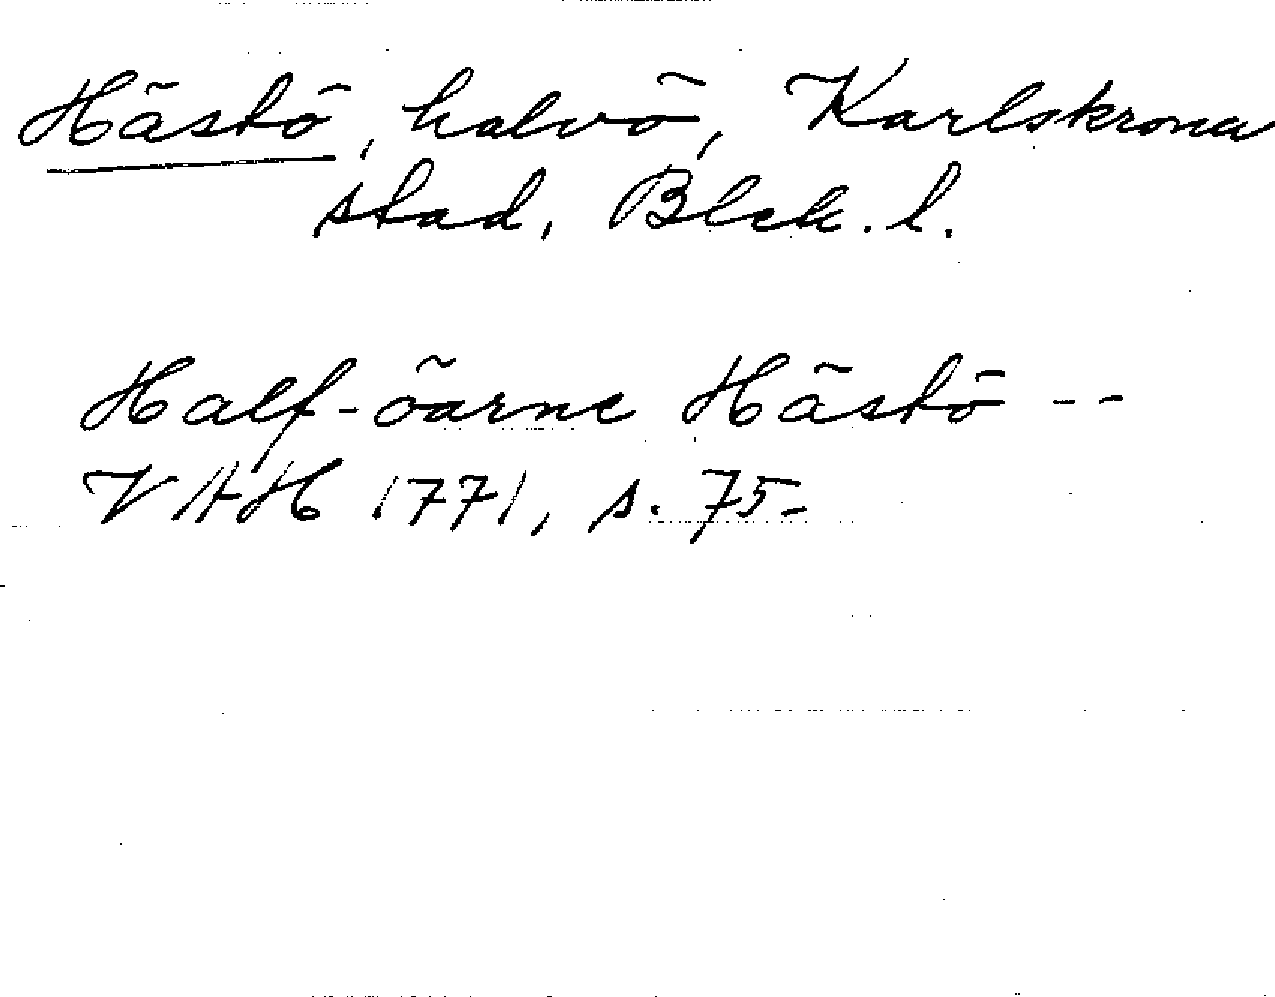 Hästö, halvö, Karlskrona
stad, Blek. l.
Half-öarne Hästö --
VAH 1771, s. 75.